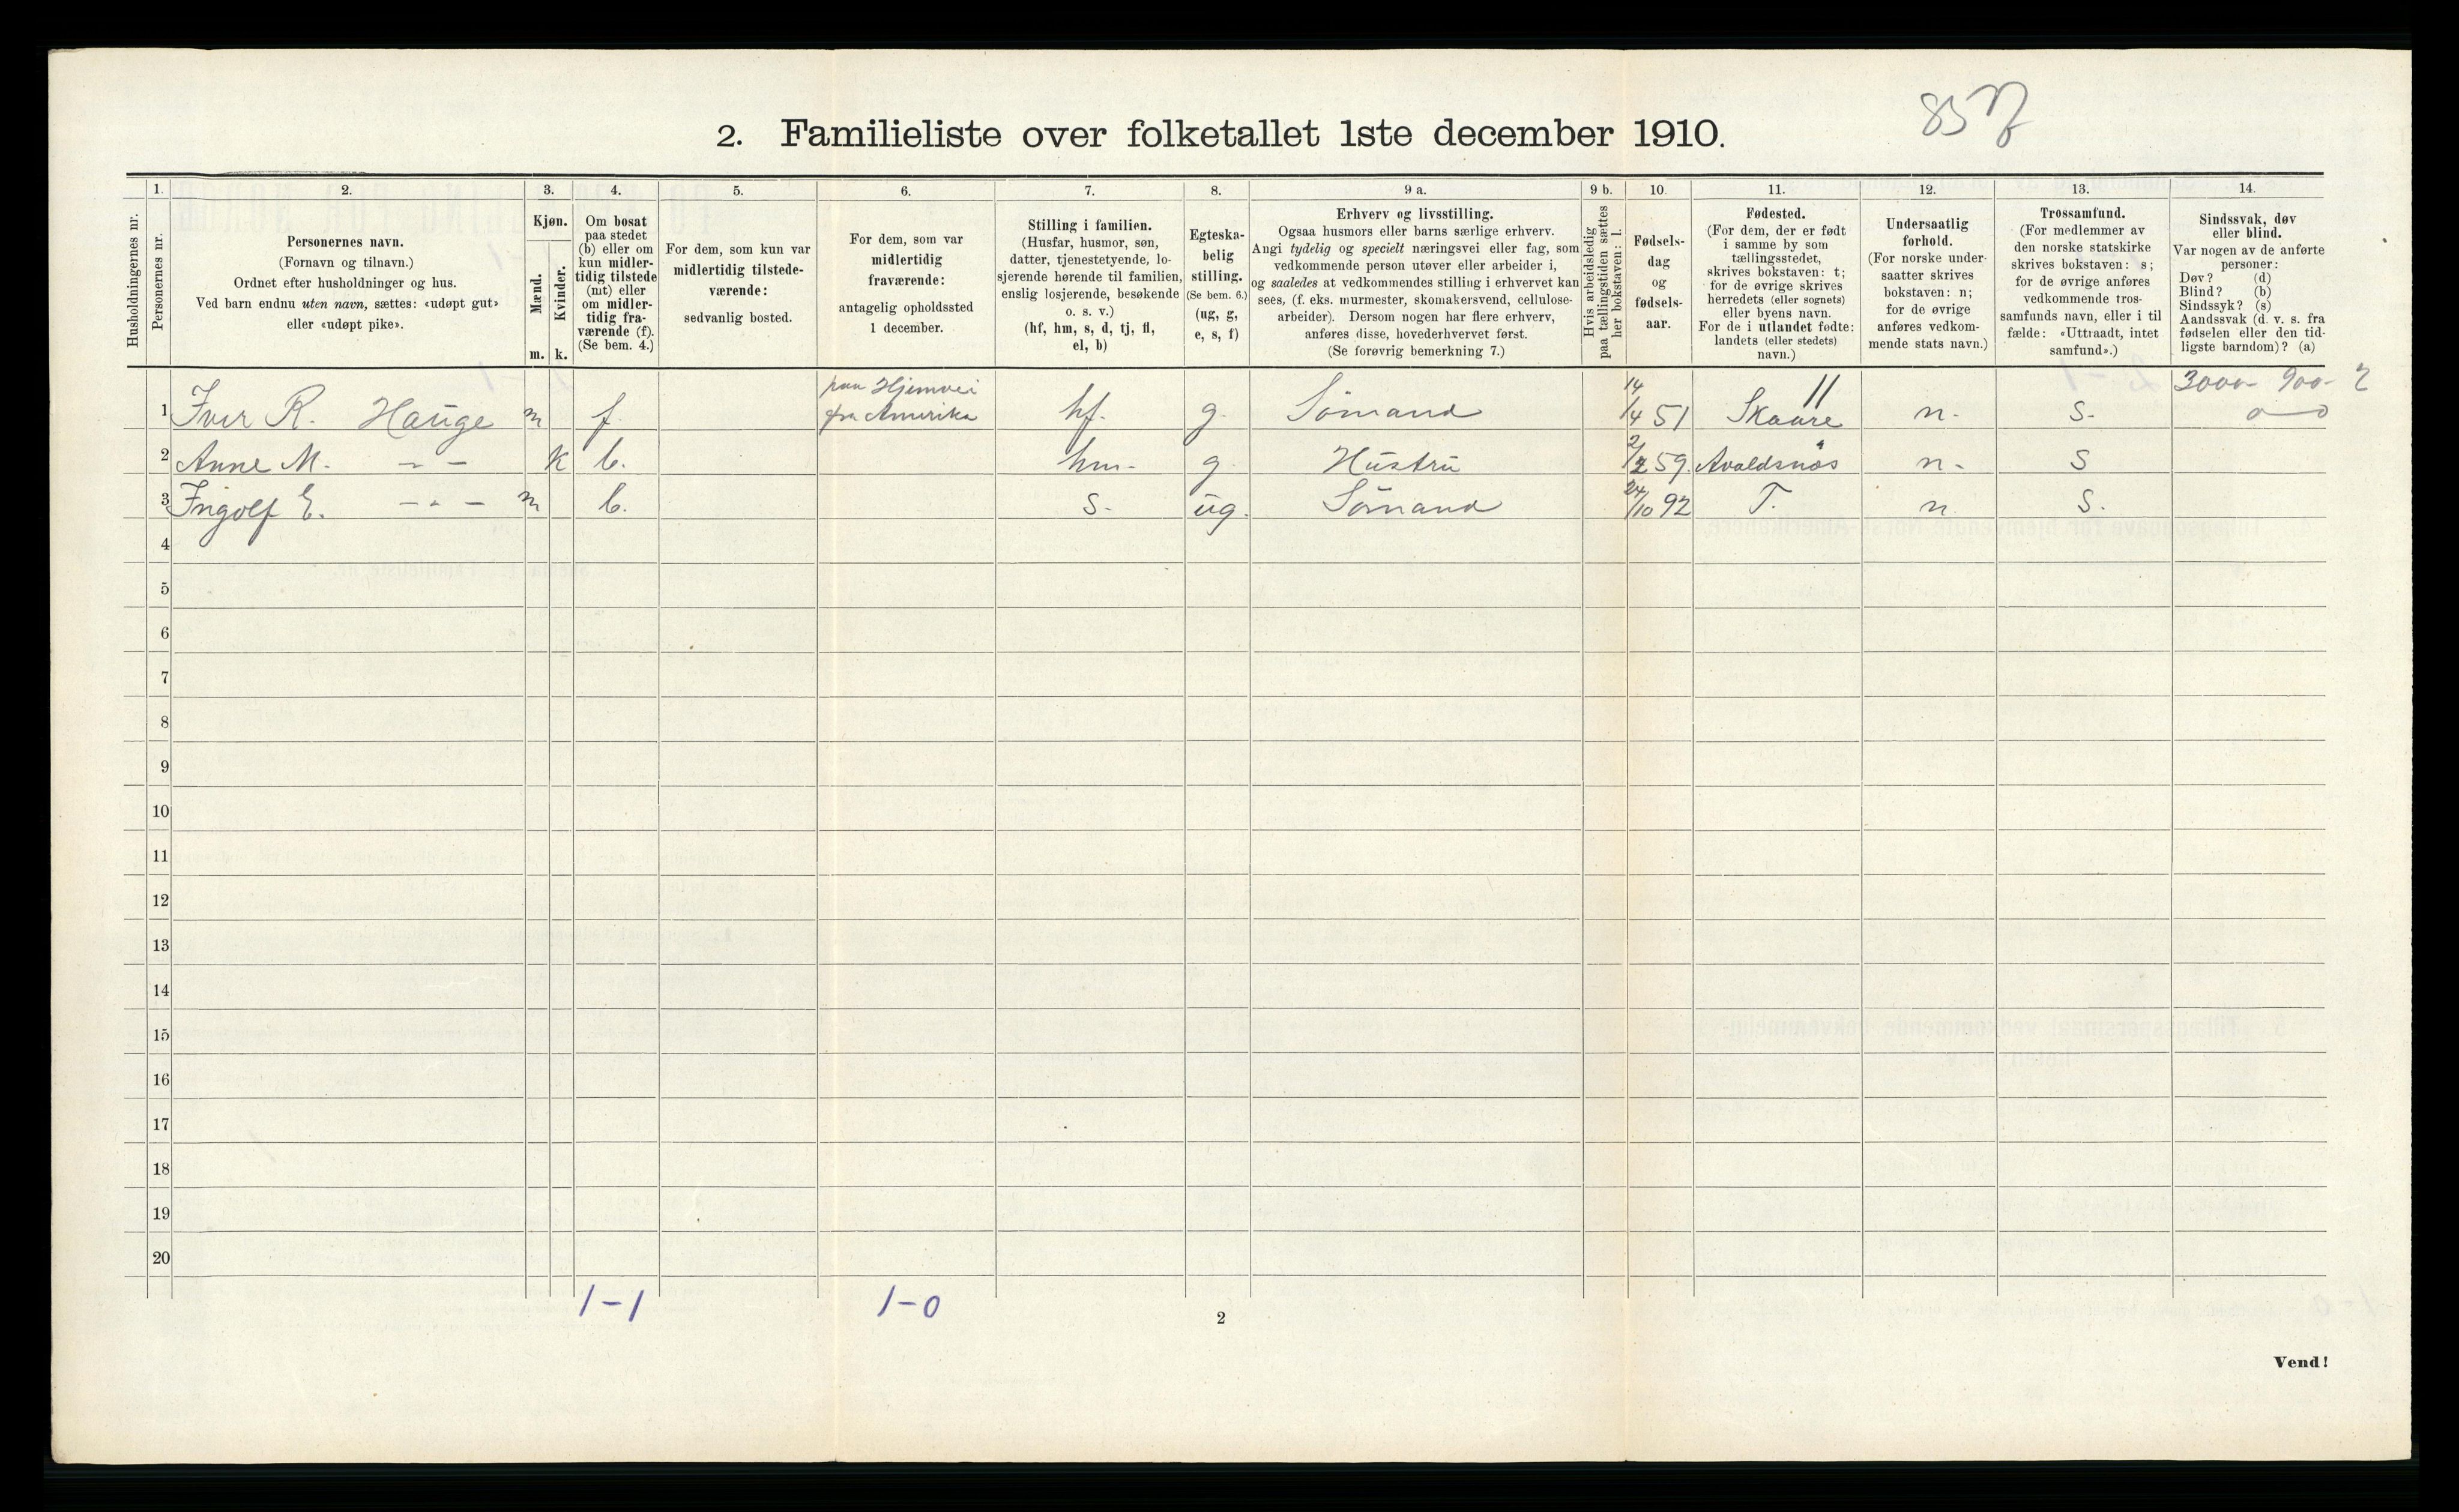 2. Familieliste over folketallet 1ste december 1910.
1. 2. 3. 4. 5. 6. 7. 8. 9 a. 9 b. 10. 11. 12. 13. 14.
Husholdningernes nr.
Personernes nr.
Personernes navn.
(Fornavn og tilnavn.)
Ordnet efter husholdninger og hus.
Ved barn endnu uten navn, sættes: «udøpt gut»
eller «udøpt pike».
Kjøn.
Mænd.
Kvinder.
m. k.
Om bosat
paa stedet
(b) eller om
kun midler-
tidig tilstede
(mt) eller
om midler-
tidig fra-
værende (f).
(Se bem. 4.)
For dem, som kun var
midlertidig tilstede-
værende:
sedvanlig bosted.
For dem, som var
midlertidig
fraværende:
antagelig opholdssted
1 december.
Stilling i familien.
(Husfar, husmor, søn,
datter, tjenestetyende, lo-
sjerende hørende til familien,
enslig losjerende, besøkende
o. s. v.)
(hf, hm, s, d, tj, fl,
el, b)
Egteska-
belig
stilling.
(Se bem. 6.)
(ug, g,
e, s, f)
Erhverv og livsstilling.
Ogsaa husmors eller barns særlige erhverv.
Angi tydelig og specielt næringsvei eller fag, som
vedkommende person utøver eller arbeider i,
og saaledes at vedkommendes stilling i erhvervet kan
sees, (f. eks. murmester, skomakersvend, cellulose-
arbeider). Dersom nogen har flere erhverv,
anføres disse, hovederhvervet først.
(Se forøvrig bemerkning 7.)
Hvis arbeidsledig
paa tællingstiden sættes
her bokstaven: l.
Fødsels-
dag
og
fødsels-
aar.
Fødested.
(For dem, der er født
i samme by som
tællingsstedet,
skrives bokstaven: t;
for de øvrige skrives
herredets (eller sognets)
eller byens navn.
For de i utlandet fødte:
landets (eller stedets)
navn.)
Undersaatlig
forhold.
(For norske under-
saatter skrives
bokstaven: n;
for de øvrige
anføres vedkom-
mende stats navn.)
Trossamfund.
(For medlemmer av
den norske statskirke
skrives bokstaven: s;
for de øvrige anføres
vedkommende tros-
samfunds navn, eller i til
fælde: «Uttraadt, intet
samfund».)
Sindssvak, døv
eller blind.
Var nogen av de anførte
personer:
Døv? (d)
Blind? (b)
Sindssyk? (s)
Aandssvak (d. v. s. fra
fødselen eller den tid-
ligste barndom)? (a)
paa Hjemvei 14 11 3000- 900- 2
1 Iver R. Hauge m f. fra Amerika hf. g. Sömand /4 51 Skaare n. s.
2 Anne M. - - k b. hm. g. Hustru 2/2 59. Avaldsnæs n. s
3 Ingolf E. - - - m b. s. ug. Sömand 24/10 92 T. n. s.
4
5
6
7
8
9
10
11
12
13
14
15
16
17
18
19
20
1-1 1-0
2
Vend!